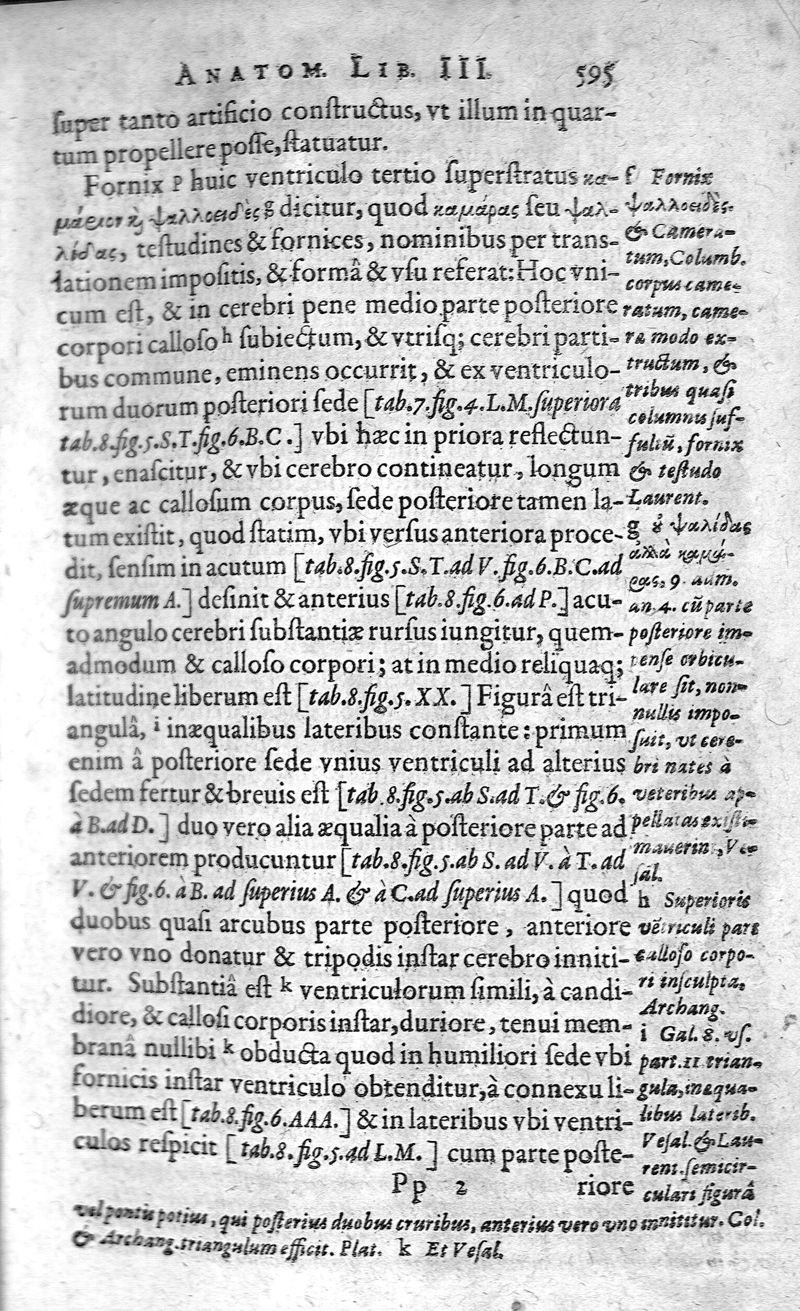 ANATOM. LIB. III. 595
ſuper tanto artificio conſtructus, vt illum in quar-
tum propellere poſſe, ſtatuatur.
Fornix p huic ventriculo tertio ſuperſtratus κα-
ψαλλοειδὲς g dicitur, quod καμάρας ſeu ψαλ-
λίδας, teſtudines & fornices, nominibus per trans-
lationem impoſitis, & formâ & vſu referat: Hoc vni-
cum eſt, & in cerebri pene medio parte poſteriore
corpori calloſo h ſubiectum, & vtriſq; cerebri parti-
bus commune, eminens occurrit, & ex ventriculo-
rum duorum poſteriori ſede [tab.7.fig.4.L.M.ſuperiora
tab.8.fig.5.S.T.fig.6.B.C.] vbi hæc in priora reflectun-
tur, enaſcitur, & vbi cerebro contineatur, longum
æque ac calloſum corpus, ſede poſteriore tamen la-
tum exiſtit, quod ſtatim, vbi verſus anteriora proce-
dit, ſenſim in acutum [tab.8.fig.5.S.T.ad V.fig.6.B.C.ad
ſupremum A.] deſinit & anterius [tab.8.fig.6.ad P.] acu-
to angulo cerebri ſubſtantiæ rurſus iungitur, quem-
admodum & calloſo corpori; at in medio reliquaq;
latitudine liberum eſt [tab.8.fig.5.XX.] Figurâ eſt tri-
angulâ, i inæqualibus lateribus conſtante: primum
enim â poſteriore ſede vnius ventriculi ad alterius
ſedem fertur & breuis eſt [tab.8.fig.5.ab S.ad T.& fig.6.
à B.ad D.] duo vero alia æqualia à poſteriore parte ad
anteriorem producuntur [tab.8.fig.5.ab S. ad V. à T. ad
V. & fig.6. à B. ad ſuperius A. & à C.ad ſuperius A.] quod
duobus quaſi arcubus parte poſteriore, anteriore
vero vno donatur & tripodis inſtar cerebro inniti-
tur. Subſtantiâ eſt k ventriculorum ſimili, à candi-
diore, & calloſi corporis inſtar, duriore, tenui mem-
branâ nullibi k obducta quod in humiliori ſede vbi
fornicis inſtar ventriculo obtenditur, à connexu li-
berum eſt [tab.8.fig.6.AAA.] & in lateribus vbi ventri-
culos reſpicit [tab.8.fig.5.ad L.M.] cum parte poſte-
Pp 2 riore
f Fornix
ψαλλοειδὲς.
& Camera-
tum, Columb.
corpus came-
ratum, came-
ra modo ex-
tructum, &
tribus quaſi
columnis ſuf-
fultũ, fornix
& teſtudo
Laurent.
g ψαλίδας
9. adm.
an.4. cũ parte
poſteriore im-
penſe orbicu-
lare ſit, non-
nullis impo-
ſuit, vt cere-
bri nates à
veteribus ap-
pellatas exiſti-
mauerin, Ve-
ſal.
h Superioris
vẽtriculi pars
calloſo corpo-
ri inſculpta,
Archang.
i Gal. 8. vſ.
part.11 trian-
gula, inæqua-
libus laterib.
Veſal. & Lau-
rent. ſemicir-
culari figurâ
vel pontis potius, qui poſterius duobus cruribus, anterius vero vno innititur. Col.
& Archang. triangulum efficit. Plat. k Et Veſal.